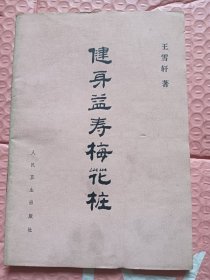 王雪轩 著
健身益寿梅花桩
人民卫生出版社